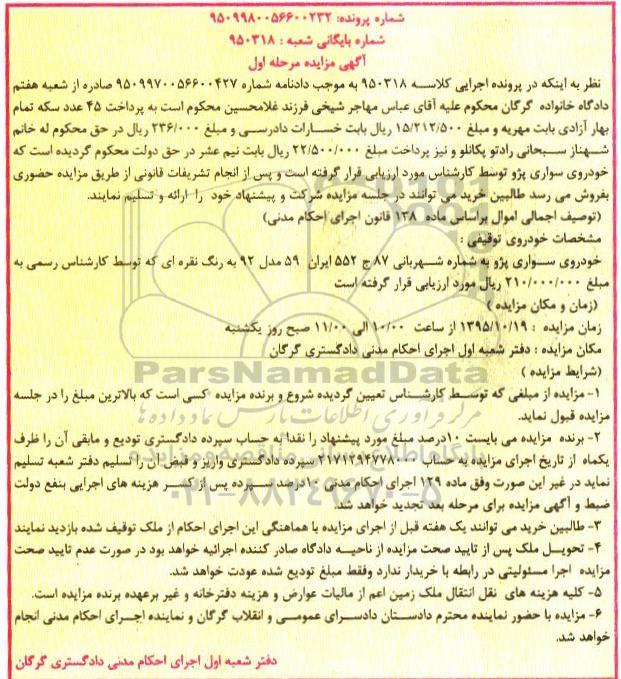 شماره پرونده: ۹۵۰۹۹۸۰۰۵۶۶۰۰۲۳۲
شماره بایگانی شعبه : ۹۵۰۳۱۸
آگهی مزایده مرحله اول
نظر به اینکه در پرونده اجرایی کلاسه ۹۵۰۳۱۸ به موجب دادنامه شماره ۹۵۰۹۹۷۰۰۵۶۶۰۰۴۲۷ صادره از شعبه هفتم
دادگاه خانواده گرگان محکوم علیه آقای عباس مهاجر شیخی فرزند غلامحسین محکوم است به پرداخت ۴۵ عدد سکه تمام
بهار آزادی بابت مهریه و مبلغ ۱۵/۲۱۲/۵۰۰ ریال بابت خسارات دادرسی و مبلغ ۲۳۶/۰۰۰ ریال در حق محکوم له خانم
شهناز سبحانی رادتو پکانلو و نیز پرداخت مبلغ ۲۲/۵۰۰/۰۰۰ ریال بابت نیم عشر در حق دولت محکوم گردیده است که
خودروی سواری پژو توسط کارشناس مورد ارزیابی قرار گرفته است و پس از انجام تشریفات قانونی از طریق مزایده حضوری
بفروش می رسد طالبین خرید می توانند در جلسه مزایده شرکت و پیشنهاد خود را ارائه و تسلیم نمایند.
(توصیف اجمالی اموال براساس ماده ۱۳۸ قانون اجرای احکام مدنی)
مشخصات خودروی توقیفی :
خودروی سواری پژو به شماره شهربانی ۸۷ ج ۵۵۲ ایران ۵۹ مدل ۹۲ به رنگ نقره ای که توسط کارشناس رسمی به
مبلغ ۲۱۰/۰۰۰/۰۰۰ ریال مورد ارزیابی قرار گرفته است
(زمان و مکان مزایده )
زمان مزایده : ۱۳۹۵/۱۰/۱۹ از ساعت ۱۰/۰۰ الی ۱۱/۰۰ صبح روز یکشنبه
مکان مزایده : دفتر شعبه اول اجرای احکام مدنی دادگستری گرگان
ParsNamadData
(شرایط مزایده )
۱- مزایده از مبلغی که توسط کارشناس تعیین گردیده شروع و برنده مزایده کسی است که بالاترین مبلغ را در جلسه
مزایده قبول نماید.
مرکز فرآوری اطلاعات پارس نماد داده ها
۲- برنده مزایده می بایست ۱۰درصد مبلغ مورد پیشنهاد را نقدا به حساب سپرده دادگستری تودیع و مابقی آن را ظرف
یکماه از تاریخ اجرای مزایده به حساب ۲۱۷۱۲۹۴۷۷۸۰۰۰ سپرده دادگستری واریز و قبض آن را تسلیم دفتر شعبه تسلیم
نماید در غیر این صورت وفق ماده ۱۲۹ اجرای احکام مدنی ۱۰درصد سپرده پس از کسر هزینه های اجرایی بنفع دولت
۰۲۱-۸۸۳۴۹۶۷۰-۵
ضبط و آگهی مزایده برای مرحله بعد تجدید خواهد شد.
۳- طالبین خرید می توانند یک هفته قبل از اجرای مزایده با هماهنگی این اجرای احکام از ملک توقیف شده بازدید نمایند
۴- تحویل ملک پس از تایید صحت مزایده از ناحیه دادگاه صادر کننده اجرائیه خواهد بود در صورت عدم تایید صحت
مزایده اجرا مسئولیتی در رابطه با خریدار ندارد وفقط مبلغ تودیع شده عودت خواهد شد.
۵- کلیه هزینه های نقل انتقال ملک زمین اعم از مالیات عوارض و هزینه دفترخانه و غیر برعهده برنده مزایده است.
۶- مزایده با حضور نماینده محترم دادستان دادسرای عمومی و انقلاب گرگان و نماینده اجرای احکام مدنی انجام
خواهد شد.
دفتر شعبه اول اجرای احکام مدنی دادگستری گرگان